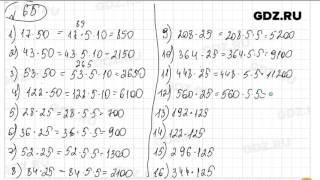 GDZ.RU
65
85
1) 17·50 = 17·5·10 = 850
2) 43·50 = 43·5·10 = 2150
265
3) 53·50 = 53·5·10 = 2650
4) 122·50 = 122·5·10 = 6100
5) 28·25 = 28·5·5 = 700
6) 36·25 = 36·5·5 = 900
7) 52·25 = 52·5·5 = 1300
8) 84·25 = 84·5·5 = 2100
9) 208·25 = 208·5·5 = 5200
10) 364·25 = 364·5·5 = 9100
11) 448·25 = 448·5·5 = 11200
12) 560·25 = 560·5·5 =
13) 192·125
14) 122·125
15) 296·125
16) 344·125
GDZ.RU